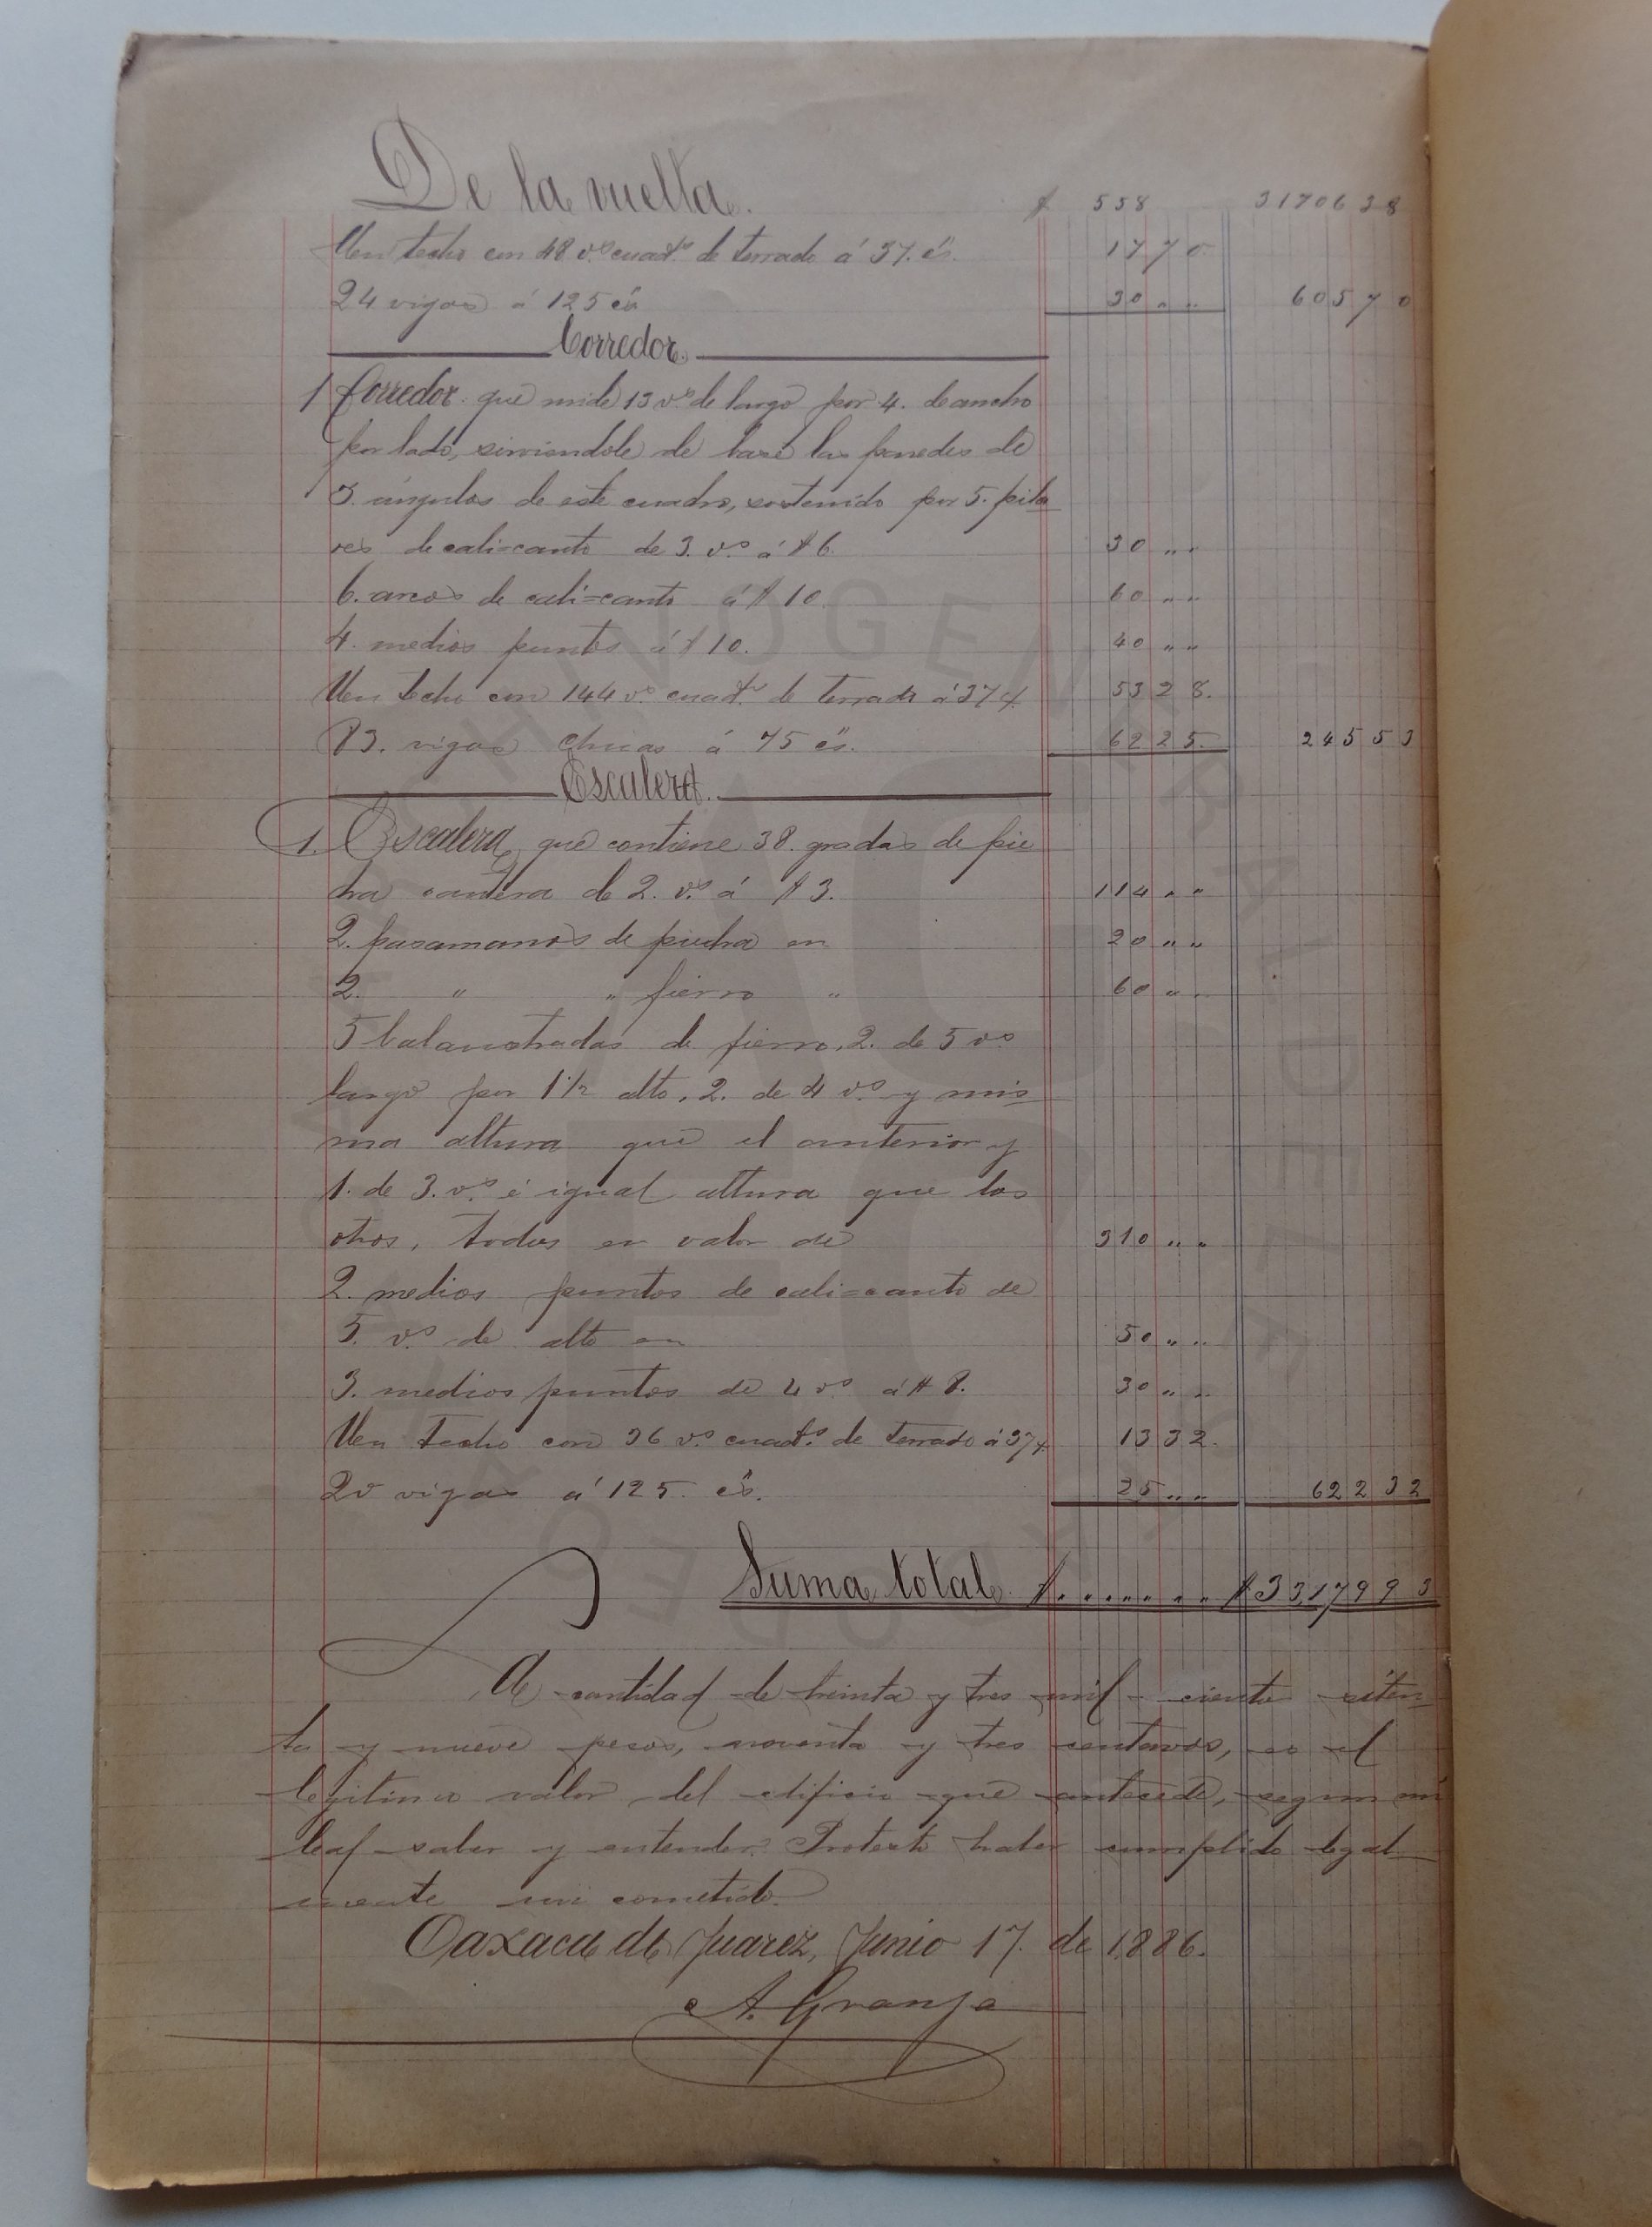 De la vuelta. $ 558 3170638
Un techo con 48 v.s cuad.s de terrado á 37. c.s 1770
24 vigas á 125 c.s 30 „ „ 60570
Corredor.
1 Corredor que mide 13 v.s de largo por 4. de ancho
por lado, sirviendole de base las paredes de
3. ángulos de este cuadro, sostenido por 5. pila
res de cali=canto de 3. v.s á $ 6. 30 „ „
6. arcos de cali=canto á $ 10. 60 „ „
4. medios puntos á $ 10. 40 „ „
Un techo con 144 v.s cuad.s de terrado á 37 5328.
83. vigas chicas á 75 c.s 6225. 24553
Escalera.
1. Escalera que contiene 38. gradas de pie
dra cantera de 2. v.s á $ 3. 114 „ „
2. pasamanos de piedra en 20 „ „
2. „ „ fierro „ 60 „ „
5 balaustradas de fierro, 2. de 5 v.s
largo por 1 1/2 alto, 2. de 4 v.s y mis
ma altura que el anterior y
1. de 3. v.s é igual altura que los
otros, todos en valor de 310 „ „
2. medios puntos de cali=canto de
5. v.s de alto en 50 „ „
3. medios puntos de 4 v.s á $ 8. 30 „ „
Un techo con 36 v.s cuad.s de terrado á 37 1332.
20 vigas á 125. c.s 25 „ „ 62232
Suma total $ . . . . . . . $ 33,17993
La cantidad de treinta y tres mil ciento seten
ta y nueve pesos, noventa y tres centavos, es el
legitimo valor del edificio que antecede, segun mi
leal saber y entender. Protesto haber cumplido legal
mente mi cometido.
Oaxaca de Juarez, Junio 17. de 1886.
A. Granja